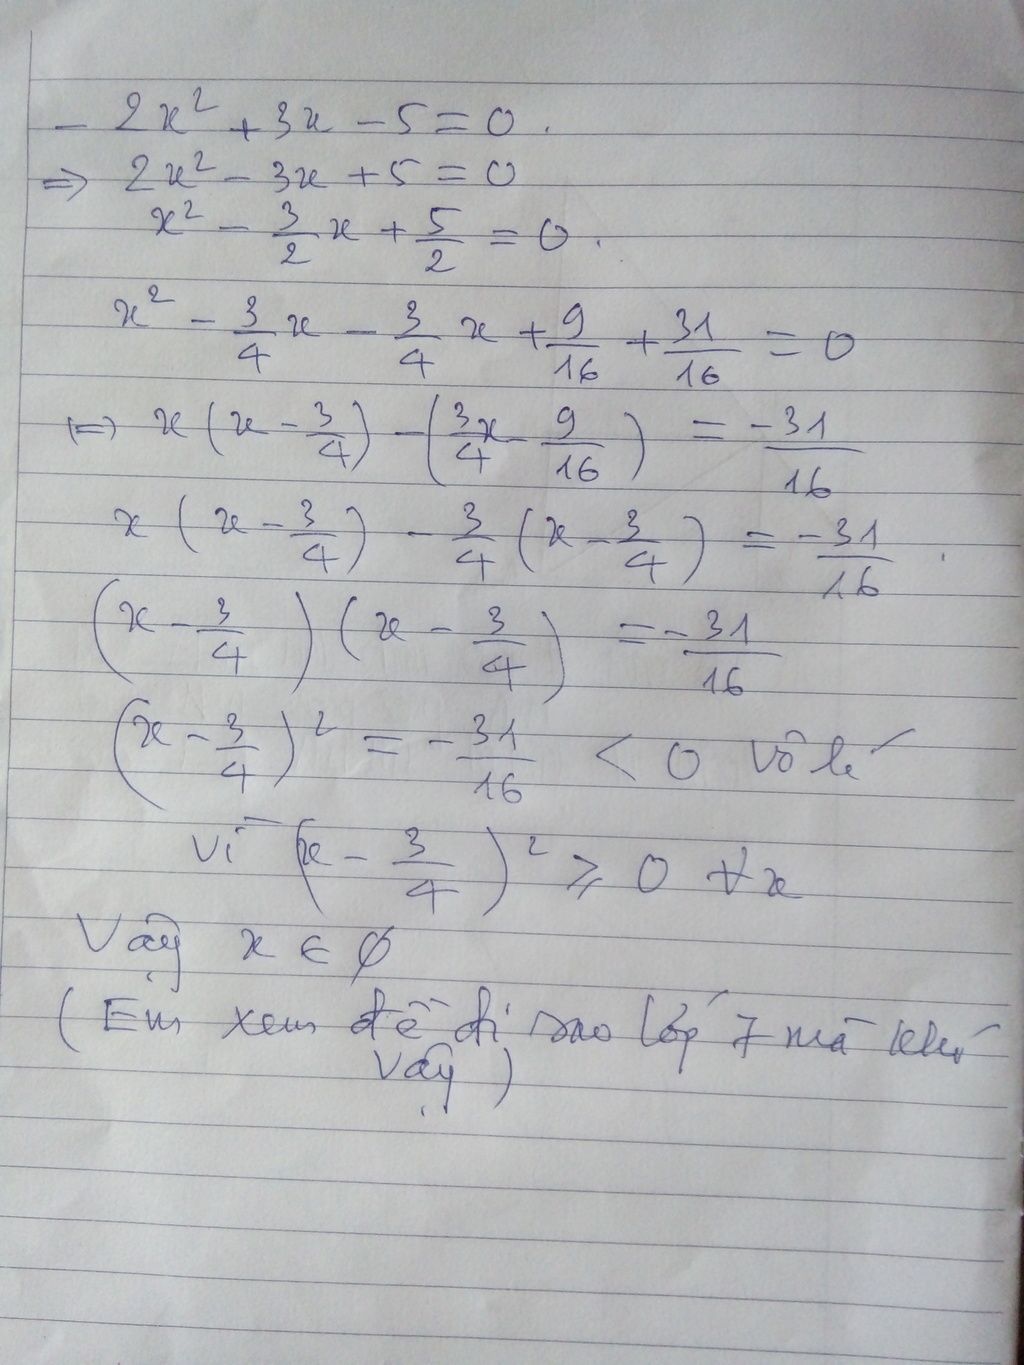 - 2x² + 3x - 5 = 0.
=> 2x² - 3x + 5 = 0
x² - 3/2 x + 5/2 = 0.
x² - 3/4 x - 3/4 x + 9/16 + 31/16 = 0
(=) x (x - 3/4) - (3/4 x - 9/16) = -31/16
x (x - 3/4) - 3/4 (x - 3/4) = -31/16.
(x - 3/4) (x - 3/4) = -31/16
(x - 3/4)² = -31/16 < 0 vô lí
vì (x - 3/4)² ≥ 0 ∀x
Vậy x ∈ ∅
(Em xem đề đi sao lớp 7 mà khó
vậy)